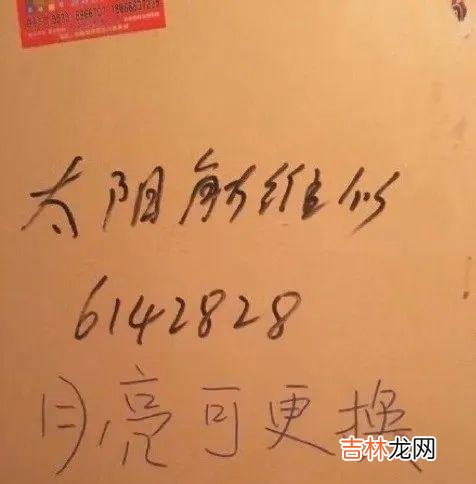 太阳能维修
6142828
月亮可更换
吉林龙网